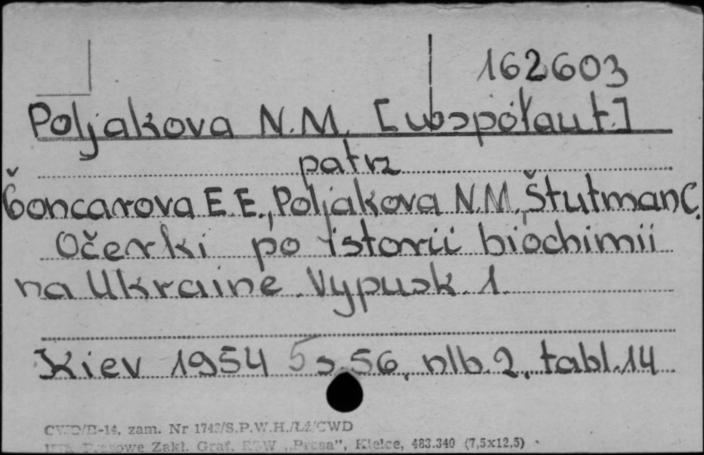 162603
Poljakova N.M. [współaut.]
patrz
Gončarova E.E., Poljakova N.M., Štutman C.
Očerki po istorii biochimii
na Ukraine. Vypusk 1.
Kiev 1954 5 s. 56, nlb. 2, tabl. 14
CWD/B-14, zam. Nr 1743/S.P.W.H./Lź/CWD
Zakł. Graf. RSW „Prasa”, Kielce, 483.340 (7,5x12,5)